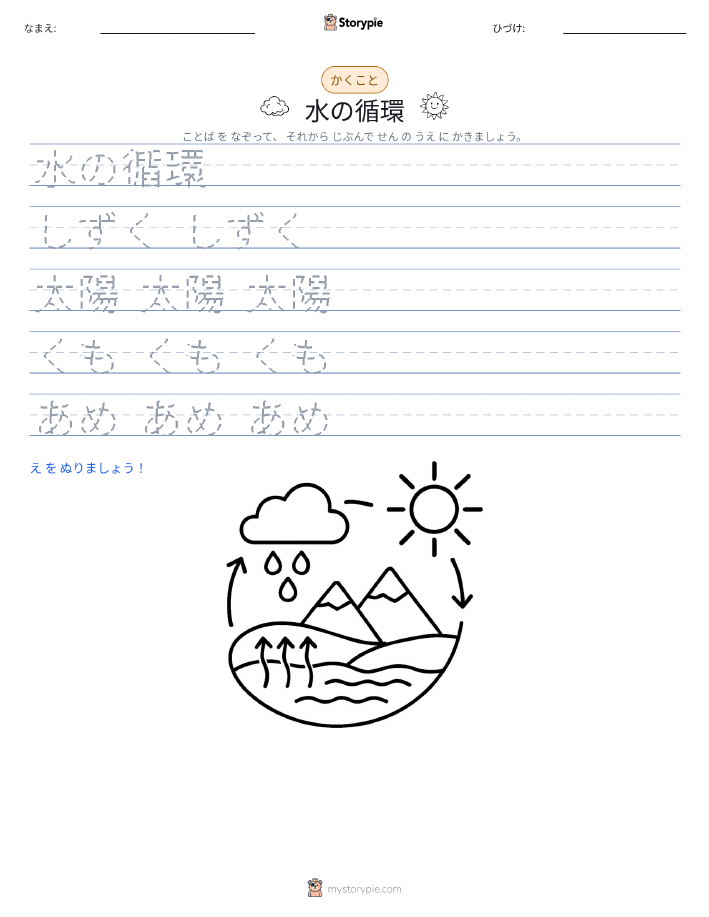 なまえ:
Storypie
ひづけ:
かくこと
水の循環
ことば を なぞって、 それから じぶんで せん の うえ に かきましょう。
水の循環
しずく しずく
太陽 太陽 太陽
くも くも くも
あめ あめ あめ
え を ぬりましょう！
mystorypie.com